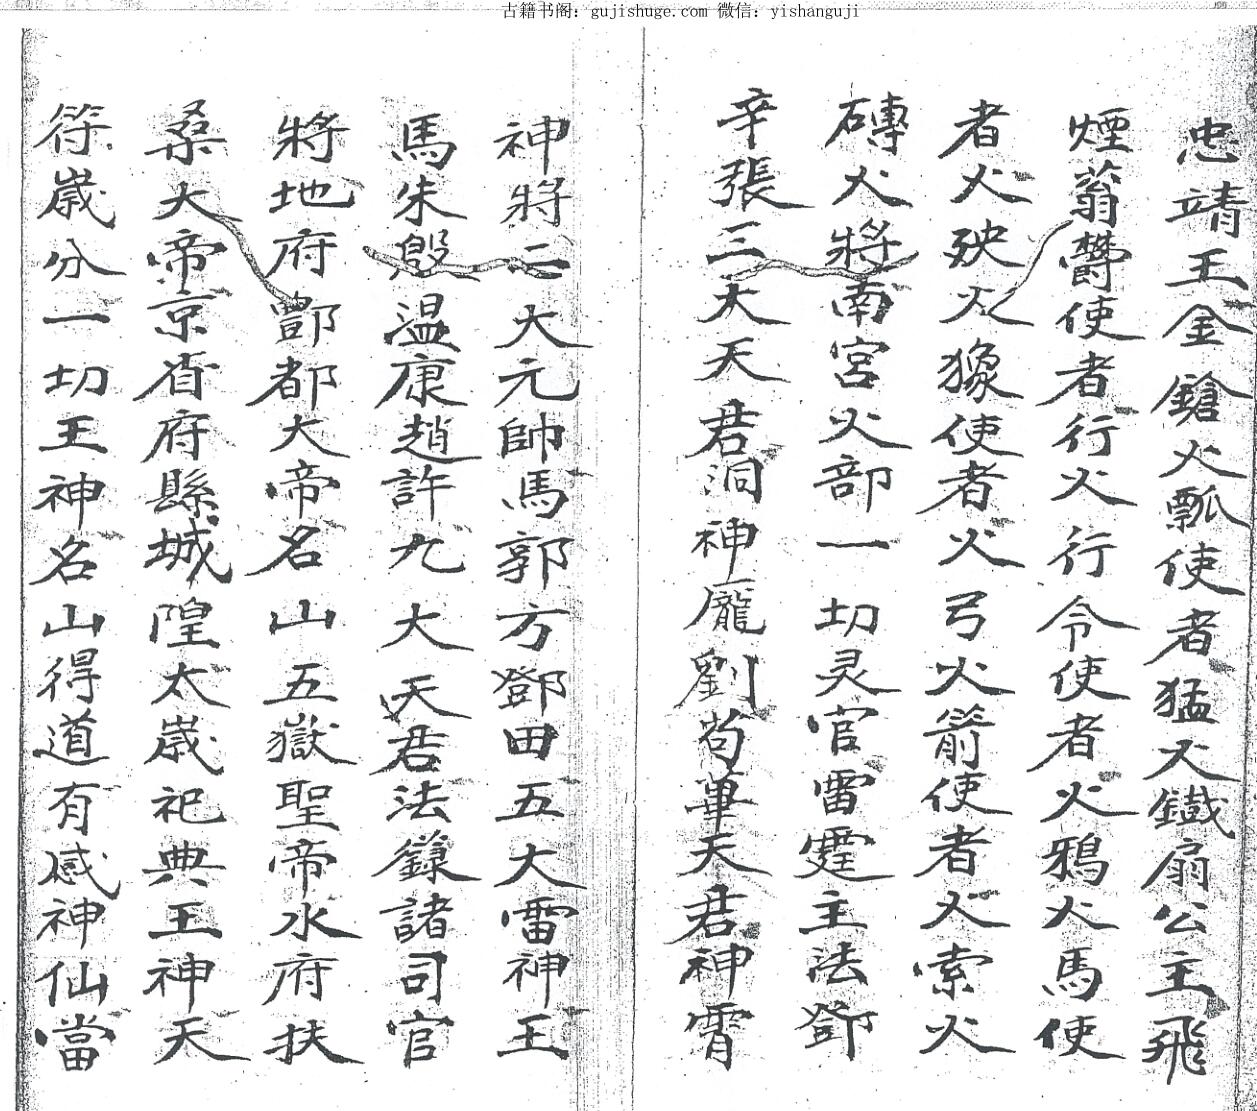 古籍书阁：gujishuge.com 微信：yishanguji
忠靖王金鎗火瓢使者猛火鐵扇公主飛
煙蓊欝使者行火行令使者火鴉火馬使
者火殃火猭使者火弓火箭使者火索火
磚火將南宮火部一切灵官雷霆主法鄧
辛張三大天君洞神龐劉苟畢天君神霄
神將二大元帥馬郭方鄧田五大雷神王
馬朱殷溫康趙許九大天君法籙諸司官
將地府酆都大帝名山五嶽聖帝水府扶
桑大帝京省府縣城隍太歲祀典王神天
符歲分一切王神名山得道有感神仙當